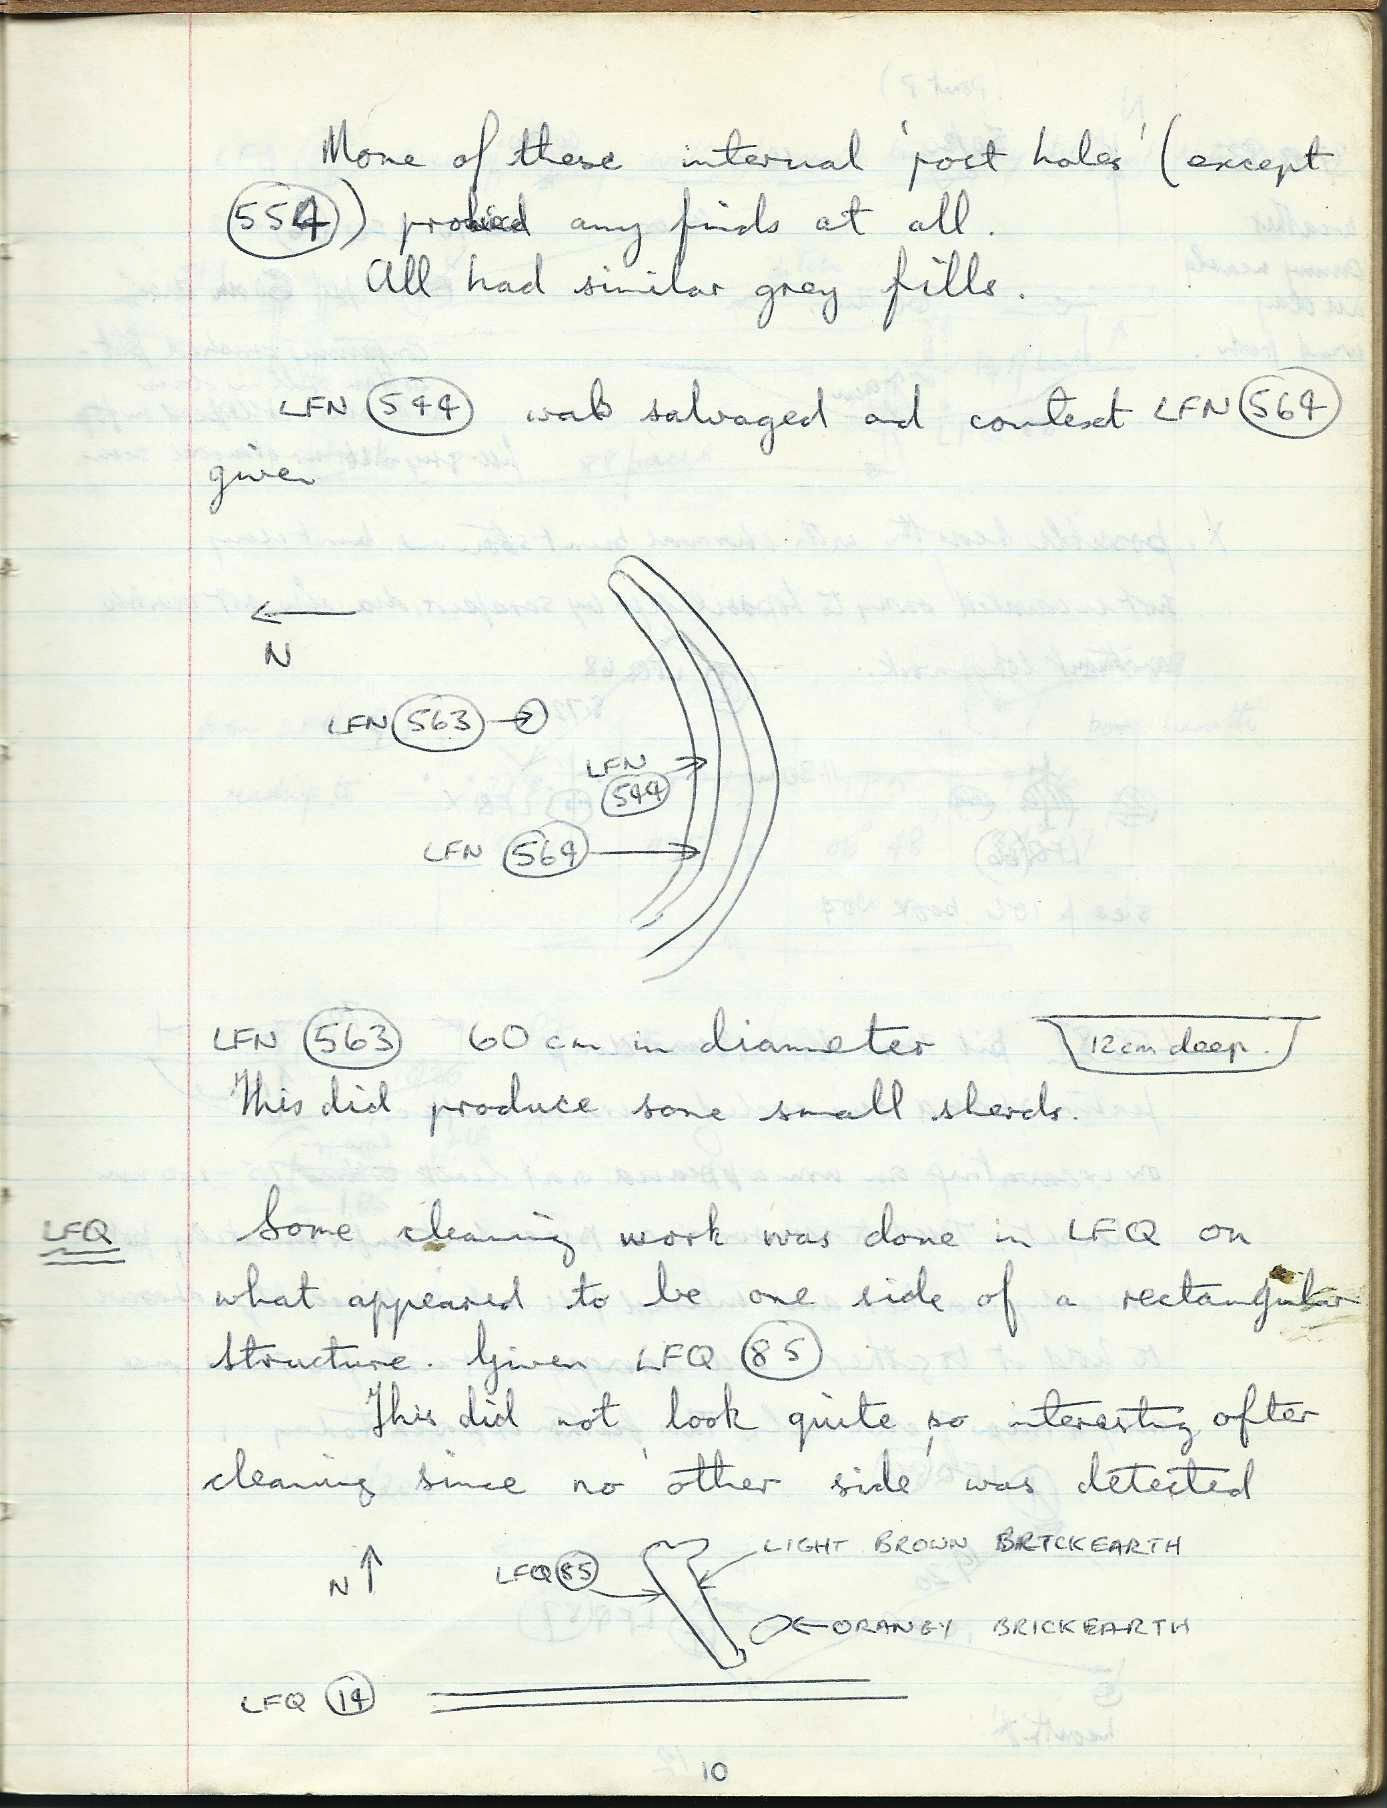 None of these internal 'post holes' (except
554) produced any finds at all.
All had similar grey fills.
LFN 544 was salvaged and context LFN 564
given
N
LFN 563
LFN
544
LFN 564
LFN 563 60cm in diameter 12cm deep.
This did produce some small sherds.
LFQ Some cleaning work was done in LFQ on
what appeared to be one side of a rectangular
structure. Given LFQ 85
This did not look quite so interesting after
cleaning since no 'other side' was detected
LIGHT BROWN BRICKEARTH
N LFQ 85
ORANGY BRICKEARTH
LFQ 14
10